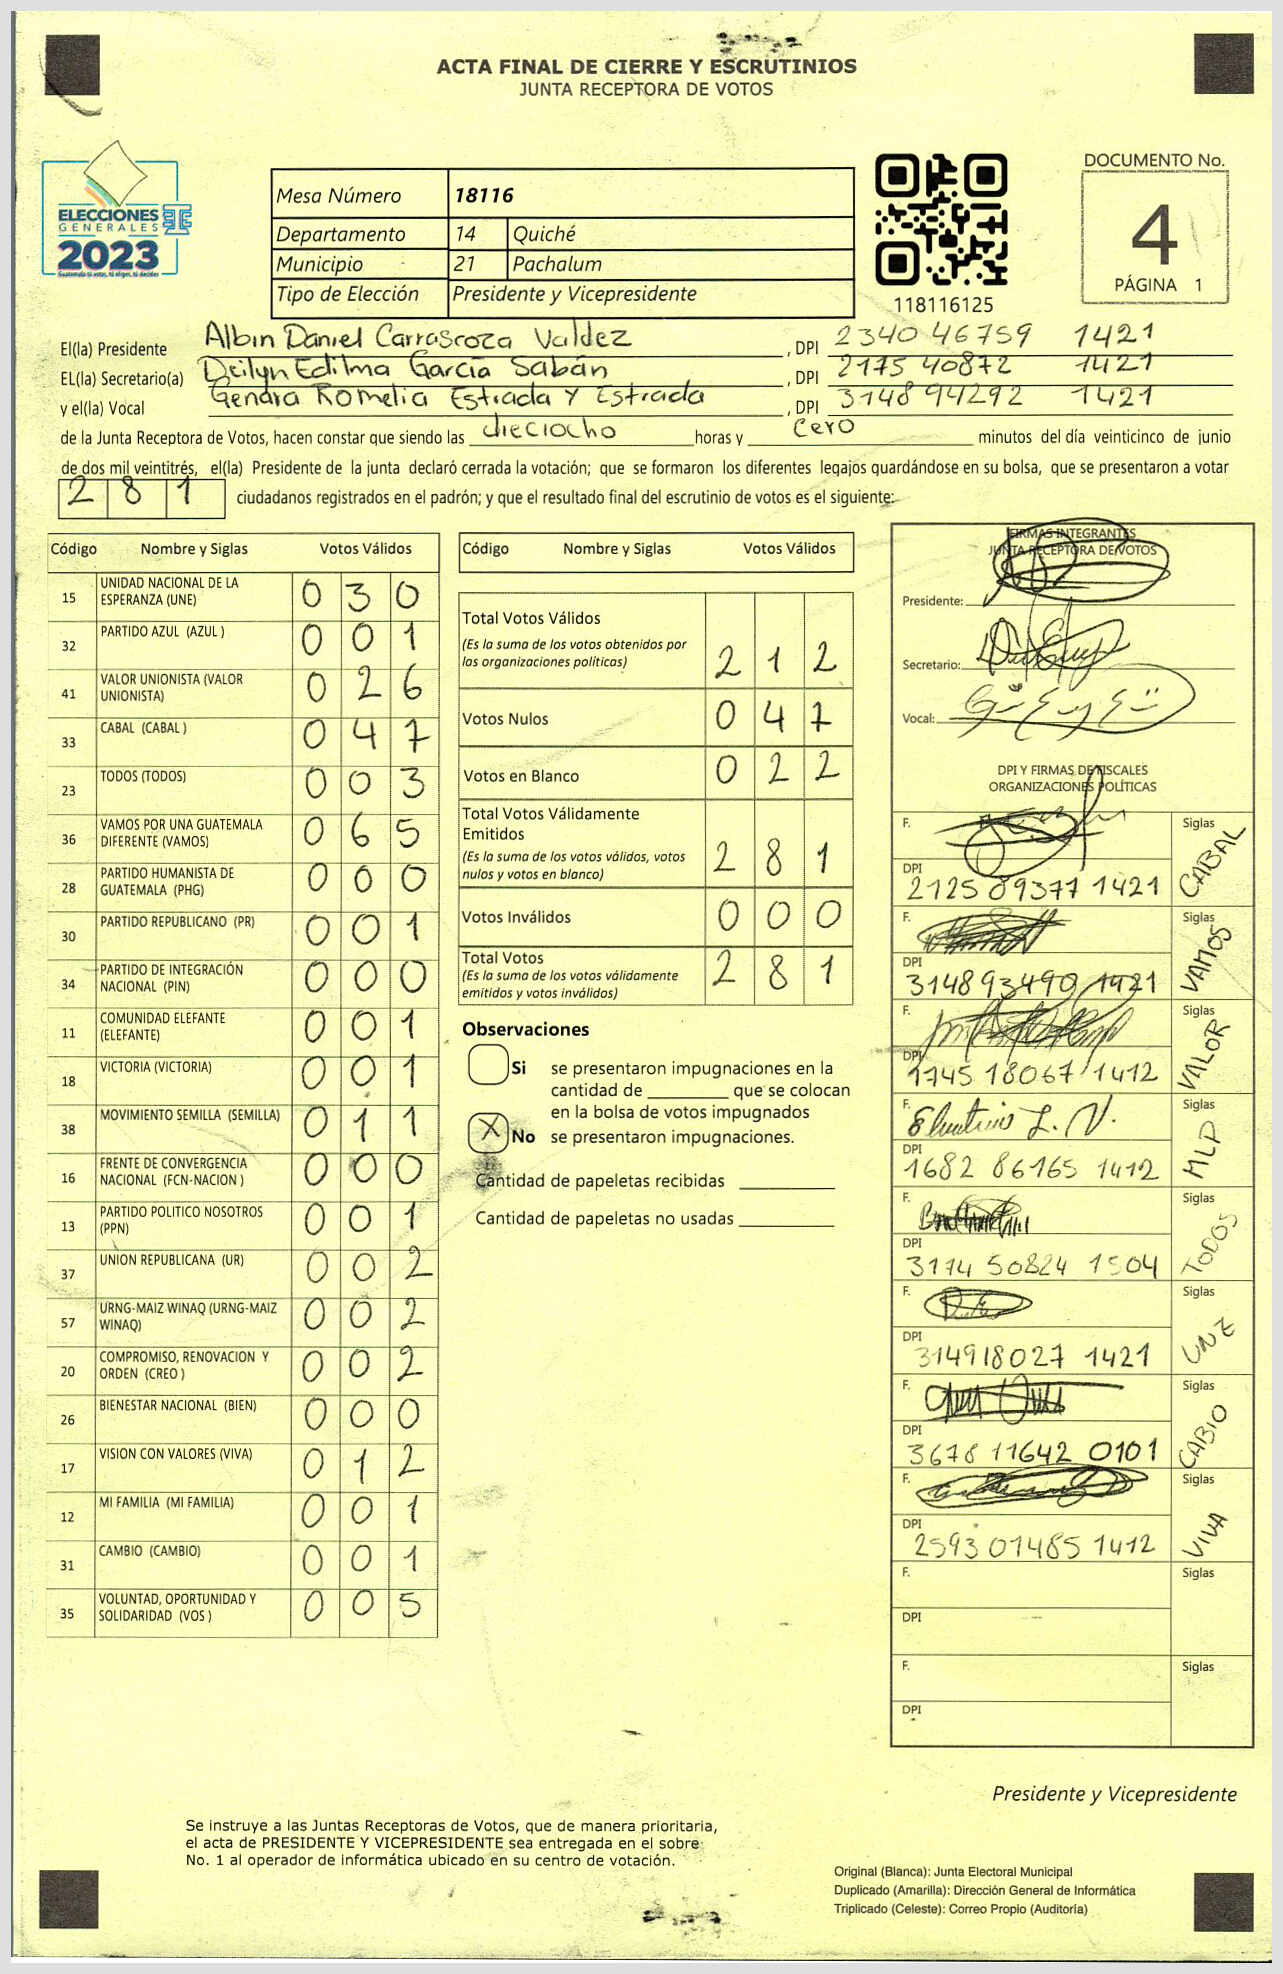 ACTA FINAL DE CIERRE Y ESCRUTINIOS
JUNTA RECEPTORA DE VOTOS
ELECCIONES
GENERALES
2023
Mesa Número 18116
Departamento 14 Quiché
Municipio 21 Pachalum
Tipo de Elección Presidente y Vicepresidente
118116125
DOCUMENTO No.
4
PÁGINA 1
El(la) Presidente Albin Daniel Carrascoza Valdez, DPI 2340 46759 1421
EL(la) Secretario(a) Deilyn Edilma García Sabán, DPI 2175 40872 1421
y el(la) Vocal Genara Romelia Estrada Y Estrada, DPI 3148 94292 1421
de la Junta Receptora de Votos, hacen constar que siendo las dieciocho horas y cero minutos del día veinticinco de junio
de dos mil veintitrés, el(la) Presidente de la junta declaró cerrada la votación; que se formaron los diferentes legajos guardándose en su bolsa, que se presentaron a votar
281 ciudadanos registrados en el padrón; y que el resultado final del escrutinio de votos es el siguiente:
Código Nombre y Siglas Votos Válidos
15 UNIDAD NACIONAL DE LA ESPERANZA (UNE) 0 3 0
32 PARTIDO AZUL (AZUL ) 0 0 1
41 VALOR UNIONISTA (VALOR UNIONISTA) 0 2 6
33 CABAL (CABAL ) 0 4 7
23 TODOS (TODOS) 0 0 3
36 VAMOS POR UNA GUATEMALA DIFERENTE (VAMOS) 0 6 5
28 PARTIDO HUMANISTA DE GUATEMALA (PHG) 0 0 0
30 PARTIDO REPUBLICANO (PR) 0 0 1
34 PARTIDO DE INTEGRACIÓN NACIONAL (PIN) 0 0 0
11 COMUNIDAD ELEFANTE (ELEFANTE) 0 0 1
18 VICTORIA (VICTORIA) 0 0 1
38 MOVIMIENTO SEMILLA (SEMILLA) 0 1 1
16 FRENTE DE CONVERGENCIA NACIONAL (FCN-NACION ) 0 0 0
13 PARTIDO POLITICO NOSOTROS (PPN) 0 0 1
37 UNION REPUBLICANA (UR) 0 0 2
57 URNG-MAIZ WINAQ (URNG-MAIZ WINAQ) 0 0 2
20 COMPROMISO, RENOVACION Y ORDEN (CREO ) 0 0 2
26 BIENESTAR NACIONAL (BIEN) 0 0 0
17 VISION CON VALORES (VIVA) 0 1 2
12 MI FAMILIA (MI FAMILIA) 0 0 1
31 CAMBIO (CAMBIO) 0 0 1
35 VOLUNTAD, OPORTUNIDAD Y SOLIDARIDAD (VOS ) 0 0 5
Código Nombre y Siglas Votos Válidos
Total Votos Válidos
(Es la suma de los votos obtenidos por las organizaciones políticas) 2 1 2
Votos Nulos 0 4 7
Votos en Blanco 0 2 2
Total Votos Válidamente Emitidos
(Es la suma de los votos válidos, votos nulos y votos en blanco) 2 8 1
Votos Inválidos 0 0 0
Total Votos
(Es la suma de los votos válidamente emitidos y votos inválidos) 2 8 1
Observaciones
Si se presentaron impugnaciones en la
cantidad de ________ que se colocan
en la bolsa de votos impugnados
X No se presentaron impugnaciones.
Cantidad de papeletas recibidas
Cantidad de papeletas no usadas
FIRMAS INTEGRANTES
JUNTA RECEPTORA DE VOTOS
Presidente:
Secretario:
Vocal:
DPI Y FIRMAS DE FISCALES
ORGANIZACIONES POLÍTICAS
F. Siglas CABAL
DPI 2125 89377 1421
F. Siglas VAMOS
DPI 314893490 1421
F. Siglas VALOR
DPI 1745 18067 1412
F. Siglas MLP
DPI 1682 86165 1412
F. Siglas TODOS
DPI 3114 50824 1504
F. Siglas UNE
DPI 314918027 1421
F. Siglas CABIO
DPI 3678 11642 0101
F. Siglas VIVA
DPI 2593 01485 1412
F. Siglas
DPI
F. Siglas
DPI
Presidente y Vicepresidente
Se instruye a las Juntas Receptoras de Votos, que de manera prioritaria,
el acta de PRESIDENTE Y VICEPRESIDENTE sea entregada en el sobre
No. 1 al operador de informática ubicado en su centro de votación.
Original (Blanca): Junta Electoral Municipal
Duplicado (Amarilla): Dirección General de Informática
Triplicado (Celeste): Correo Propio (Auditoría)